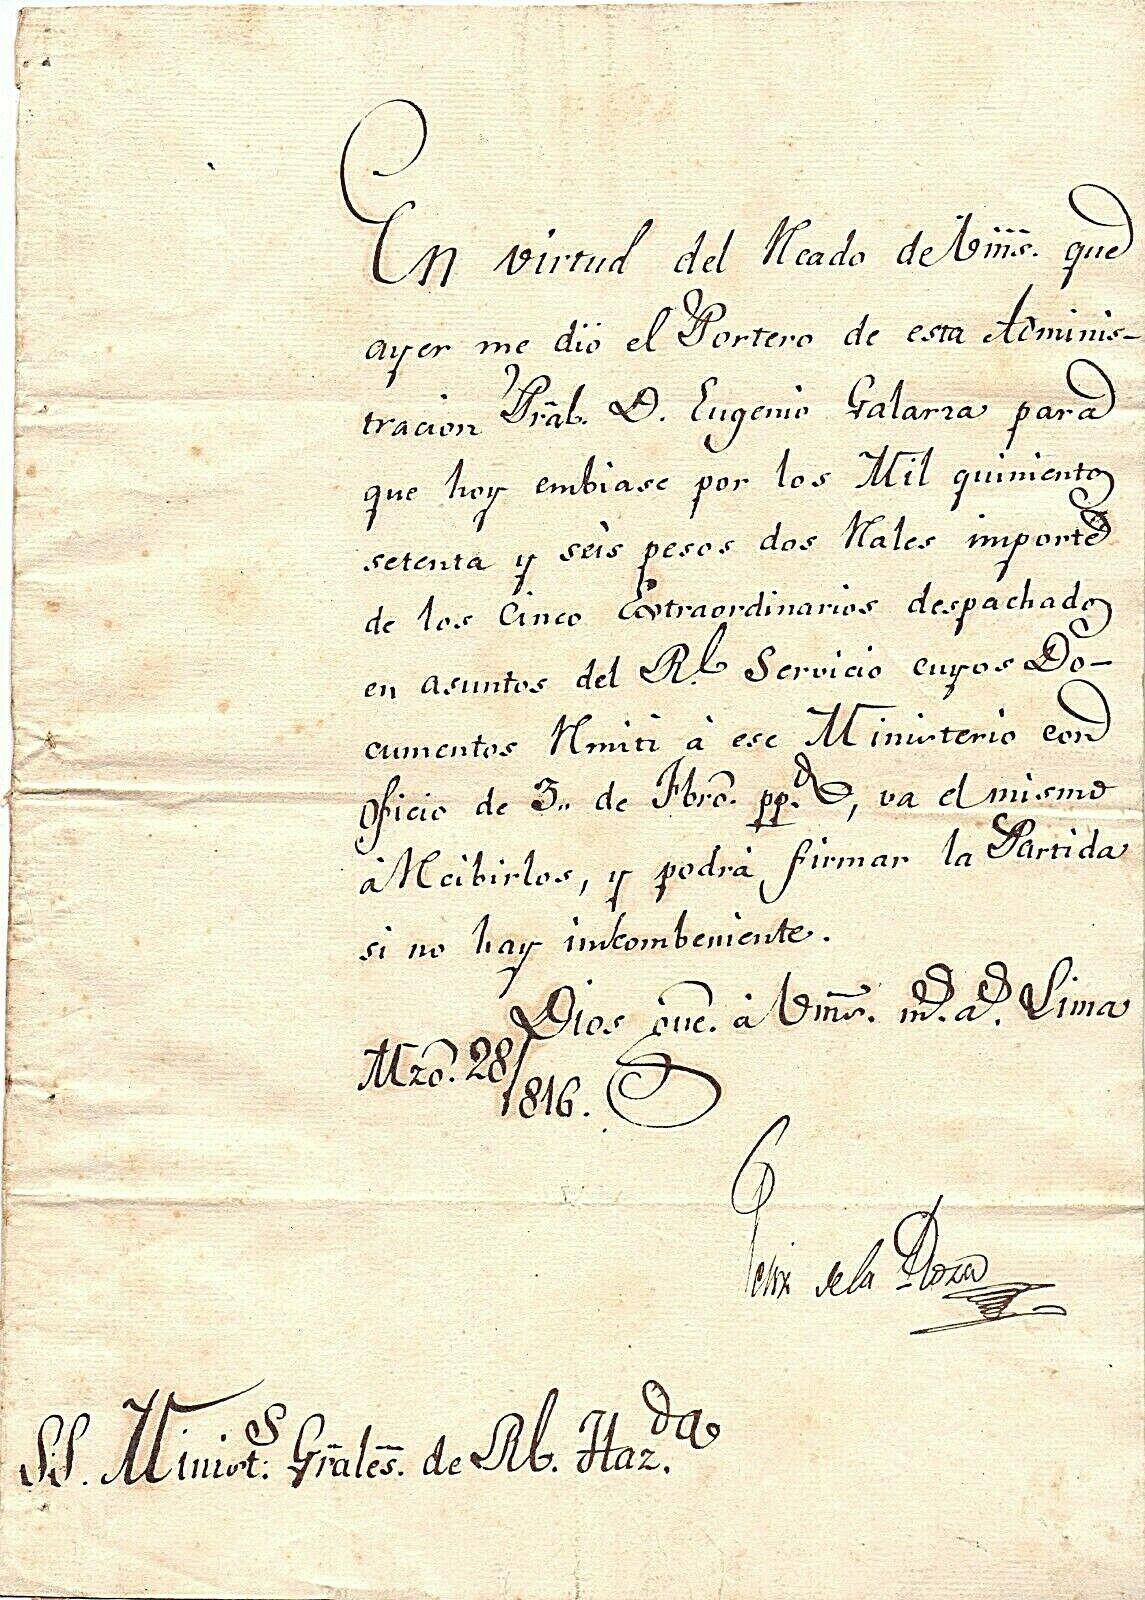 En virtud del Rcado de Vmȓs. que
ayer me dió el Portero de esta Adminis-
tracion Pral. D. Eugenio Galarza para
que hoy embiase por los Mil quinientos
setenta y seis pesos dos Rales importe
de los Cinco Extraordinarios despachados
en asuntos del Rl. Servicio cuyos Do-
cumentos Rmiti à ese Ministerio con
Oficio de 3,, de Fbro. pp.do, va el mismo
à Rcibirlos, y podrà firmar la Partida
si no hay inkombeniente.
Dios gue. à Vms. m.s a.s Lima
Mzo. 28/1816.
Felix de la Roza
SS. Minist.s Grales. de Rl. Haz.da